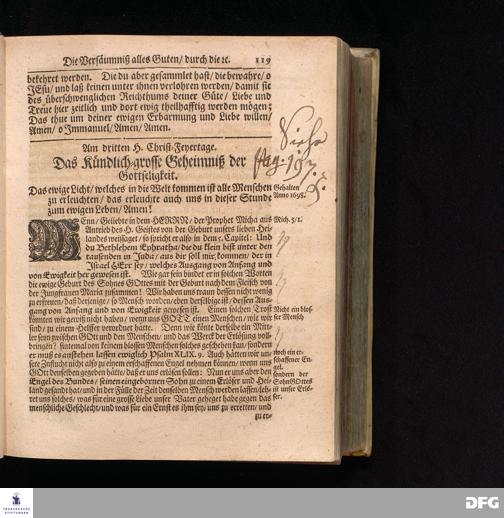 Die Versäumniß alles Guten/ durch die ꝛc. 119
bekehret werden. Die du aber gesammlet hast/ die bewahre/ o
JEsu/ und laß keinen unter ihnen verlohren werden/ damit sie
des überschwenglichen Reichthums deiner Güte/ Liebe und
Treue hier zeitlich und dort ewig theilhafftig werden mögen;
Das thue um deiner ewigen Erbarmung und Liebe willen/
Amen/ o Immanuel/ Amen/ Amen.
Siehe
pag. 197.
Am dritten H. Christ-Feyertage.
Das Kündlich-grosse Geheimniß der
Gottseligkeit.
Das ewige Licht/ welches in die Welt kommen ist alle Menschen
zu erleuchten/ das erleuchte auch uns in dieser Stunde
zum ewigen Leben/ Amen!
Gehalten
Anno 1698.
WEnn/ Geliebte in dem HERRN/ der Prophet Micha aus
Antrieb des H. Geistes von der Geburt unsers lieben Hei-
landes weissaget/ so spricht er also in dem 5. Capitel: Und
du Bethlehem Ephratha/ die du klein bist unter den
tausenden in Juda/ aus dir soll mir kommen/ der in
Israel HErr sey/ welches Ausgang von Anfang und
von Ewigkeit her gewesen ist. Wie gar fein bindet er in solchen Worten
die ewige Geburt des Sohnes GOttes mit der Geburt nach dem Fleisch von
der Jungfrauen Maria zusammen! Wir haben uns traun dessen nicht wenig
zu erfreuen/ daß derjenige/ so Mensch worden/ eben derselbige ist/ dessen Aus-
gang von Anfang und von Ewigkeit gewesen ist. Einen solchen Trost
könnten wir gewiß nicht haben/ wenn uns GOTT einen Menschen/ wie wir
sind/ zu einem Helffer verordnet hätte. Denn wie könte derselbe ein Mitt-
ler seyn zwischen GOtt und den Menschen/ und das Werck der Erlösung voll-
bringen? sintemal von keinem blossen Menschen solches geschehen kan/ sondern
er muß es anstehen lassen ewiglich Psalm XLIX. 9. Auch hätten wir un-
sere Zuflucht nicht also zu einem erschaffenen Engel nehmen können/ wenn uns
GOtt denselben gegeben hätte/ daß er uns erlösen sollen: Nun er uns aber den
Engel des Bundes/ seinen eingebornen Sohn zu einem Erlöser und Hei-
land gesandt hat/ und in der Fülle der Zeit denselben Mensch werden lassen/ leh-
ret uns solches/ was für eine grosse Liebe unser Vater geheget habe gegen das
menschliche Geschlecht/ und was für ein Ernst es ihm sey/ uns zu erretten/ und
zu er-
Mich. 5/1.
Nicht ein blos-
ser Mensch
noch ein er-
schaffener En-
gel.
sondern der
Sohn GOttes
ist unser Erlö-
ser.
FRANCKESCHE
STIFTUNGEN
DFG